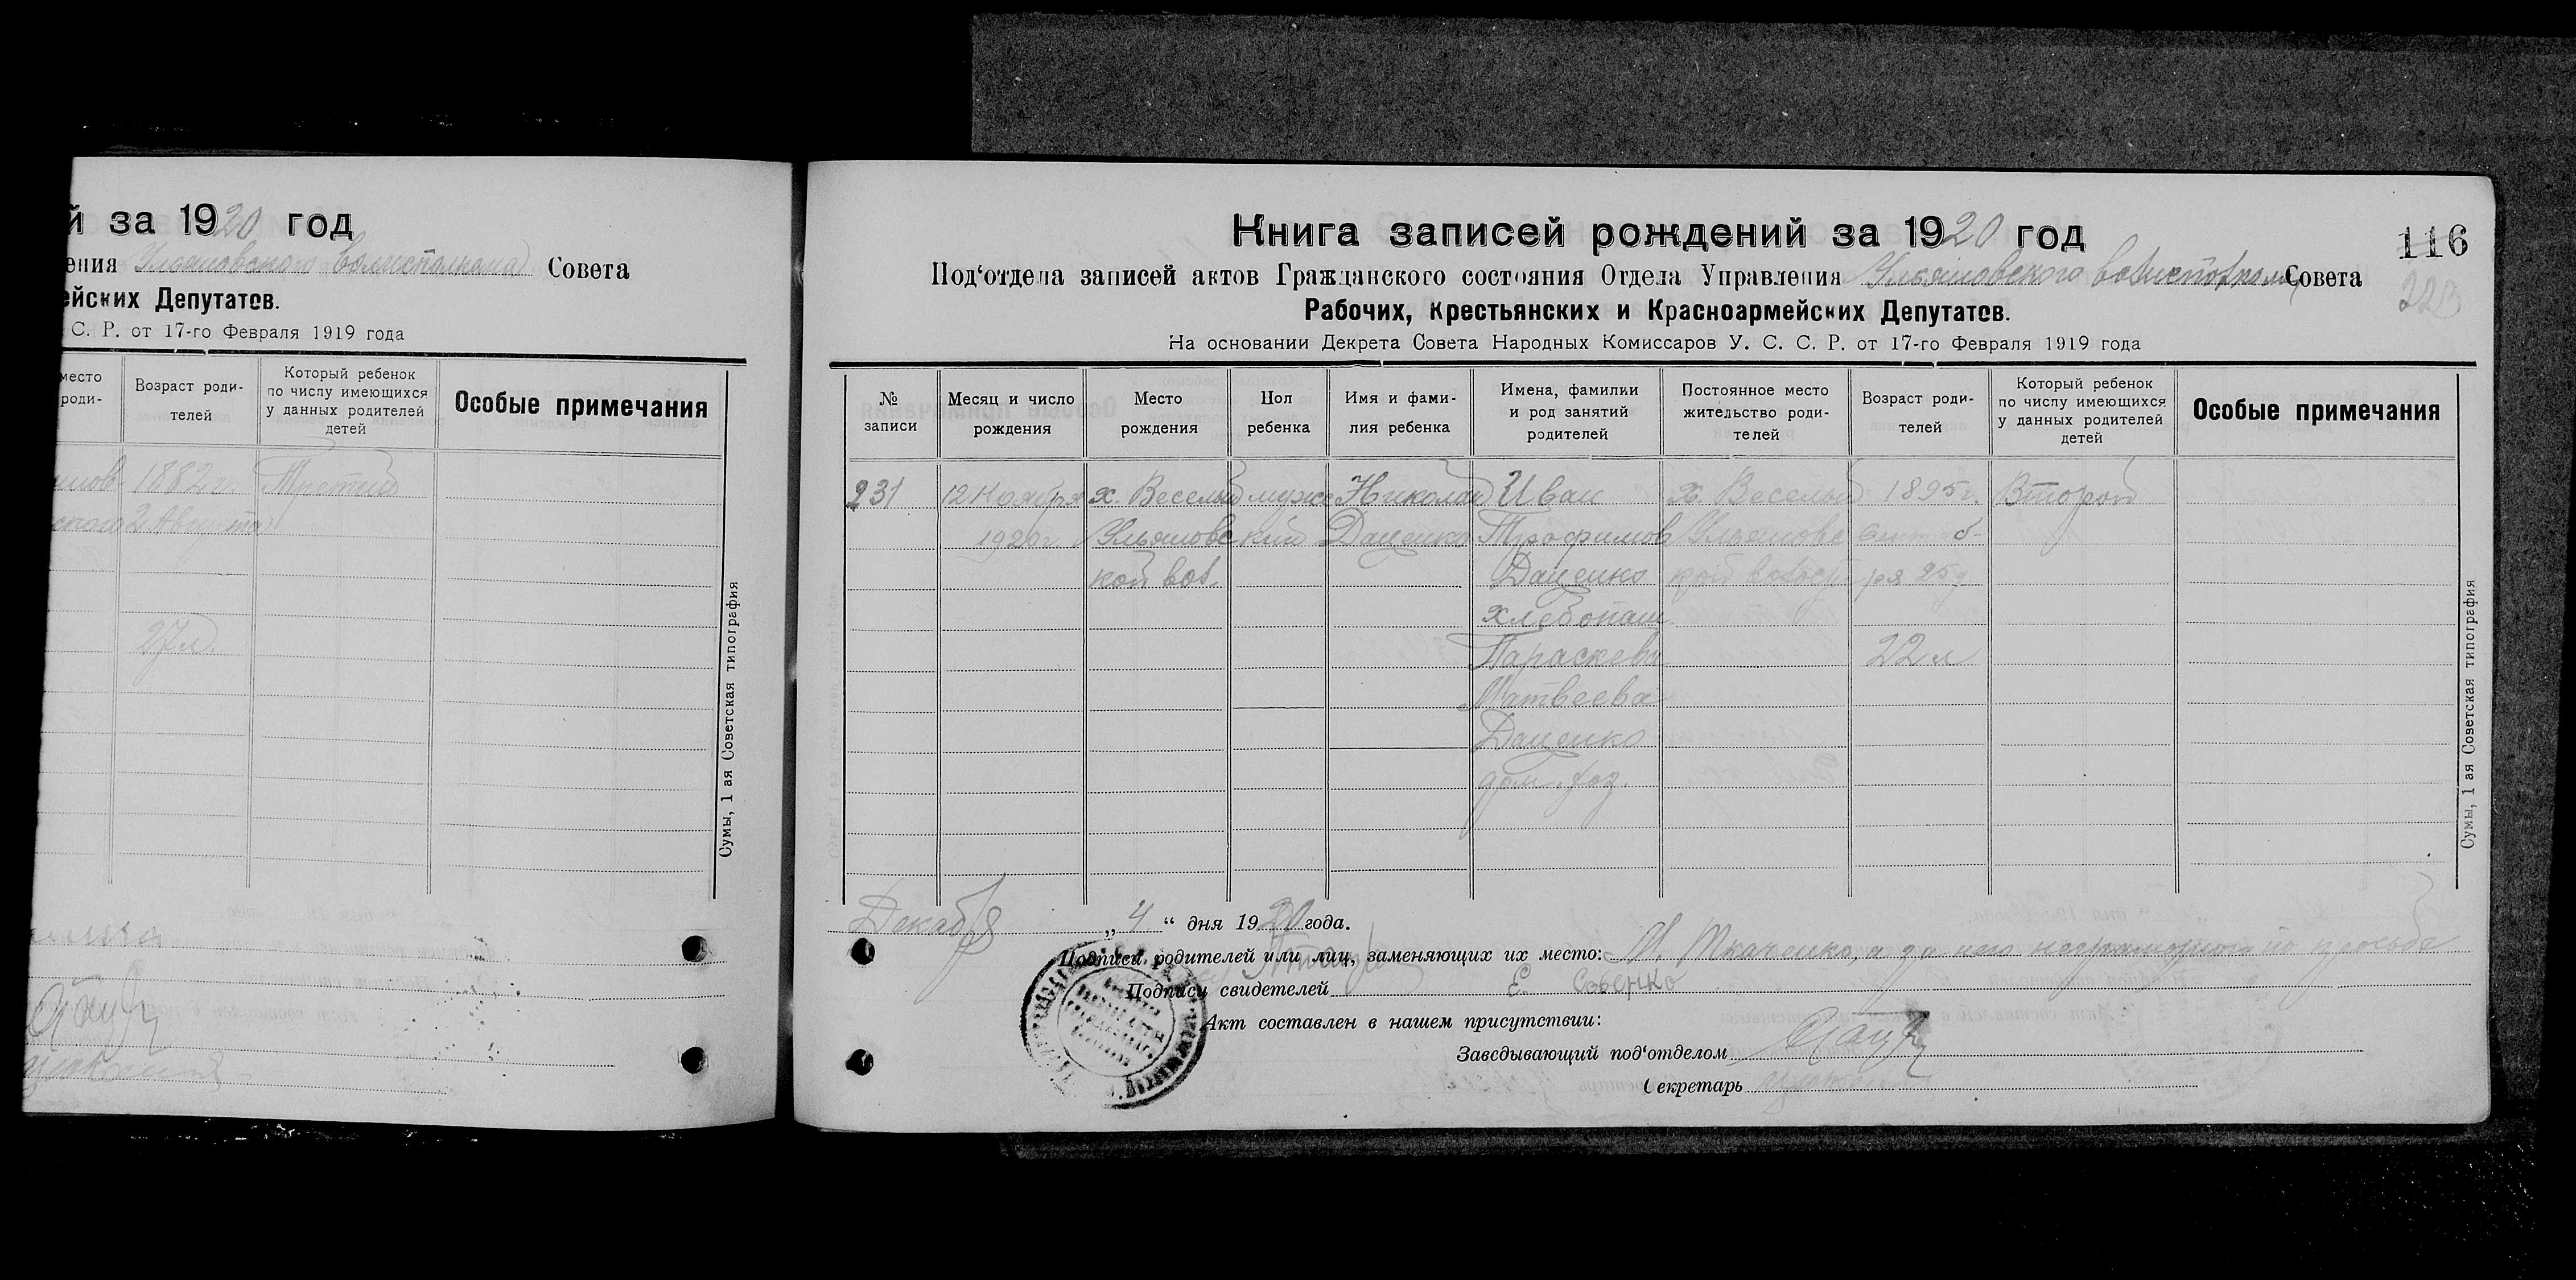 й за 1920 год
ения Ульяновского волисполкома Совета
ейских Депутатов.
С. Р. от 17-го Февраля 1919 года
место роди-
Возраст роди-
телей
Который ребенок
по числу имеющихся
у данных родителей
детей
Особые примечания
1882 г. Третий
2 Августа
27 л.
Сумы, 1 ая Советская типография
Книга записей рождений за 1920 год
116
Под‘отдела записей актов Гражданского состояния Отдела Управления Ульяновского волисполкома Совета
223
Рабочих, Крестьянских и Красноармейских Депутатов.
На основании Декрета Совета Народных Комиссаров У. С. С. Р. от 17-го Февраля 1919 года
№
записи
Месяц и число
рождения
Место
рождения
Пол
ребенка
Имя и фами-
лия ребенка
Имена, фамилии
и род занятий
родителей
Постоянное место
жительство роди-
телей
Возраст роди-
телей
Который ребенок
по числу имеющихся
у данных родителей
детей
Особые примечания
231 12 Ноября х. Веселый мужс Николай Иван х. Веселый 1895 г. Второй
1920 г. Ульяновс кий Даценко Трофимов Ульяновс
кой вол. Даценко кой вол 25
хлебопаш.
Параскева 22 л
Матвеева
Даценко
дом. хоз.
Сумы, 1 ая Советская типография
Декабря „ 4 “ дня 1920 года.
Подписи родителей или лиц, заменяющих их место: И. Ткаченко, а за него неграмотного по просьбе
Подписи свидетелей Е.
Акт составлен в нашем присутствии:
Заведывающий под‘отделом
Секретарь